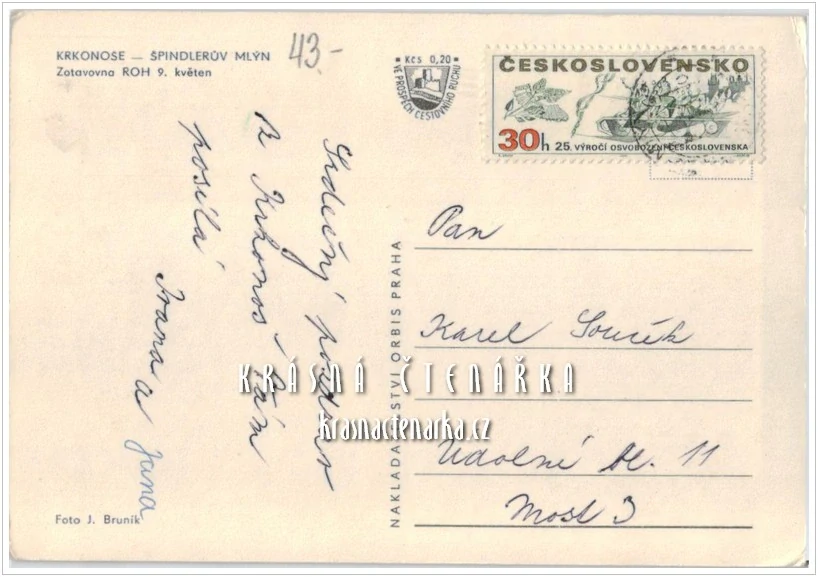 KRKONOSE — ŠPINDLERŮV MLÝN
Zotavovna ROH 9. květen
43.-
Kčs 0,20
VE PROSPĚCH CESTOVNÍHO RUCHU
ČESKOSLOVENSKO
30h 25. VÝROČÍ OSVOBOZENÍ ČESKOSLOVENSKA
Srdečný pozdrav
z Krkonoš Vám
posílá
Ivana a Jana
NAKLADATELSTVÍ ORBIS PRAHA
Pan
Karel Souček
Údolní bl. 11
Most 3
KRÁSNÁ ČTENÁŘKA
krasnactenarka.cz
Foto J. Bruník